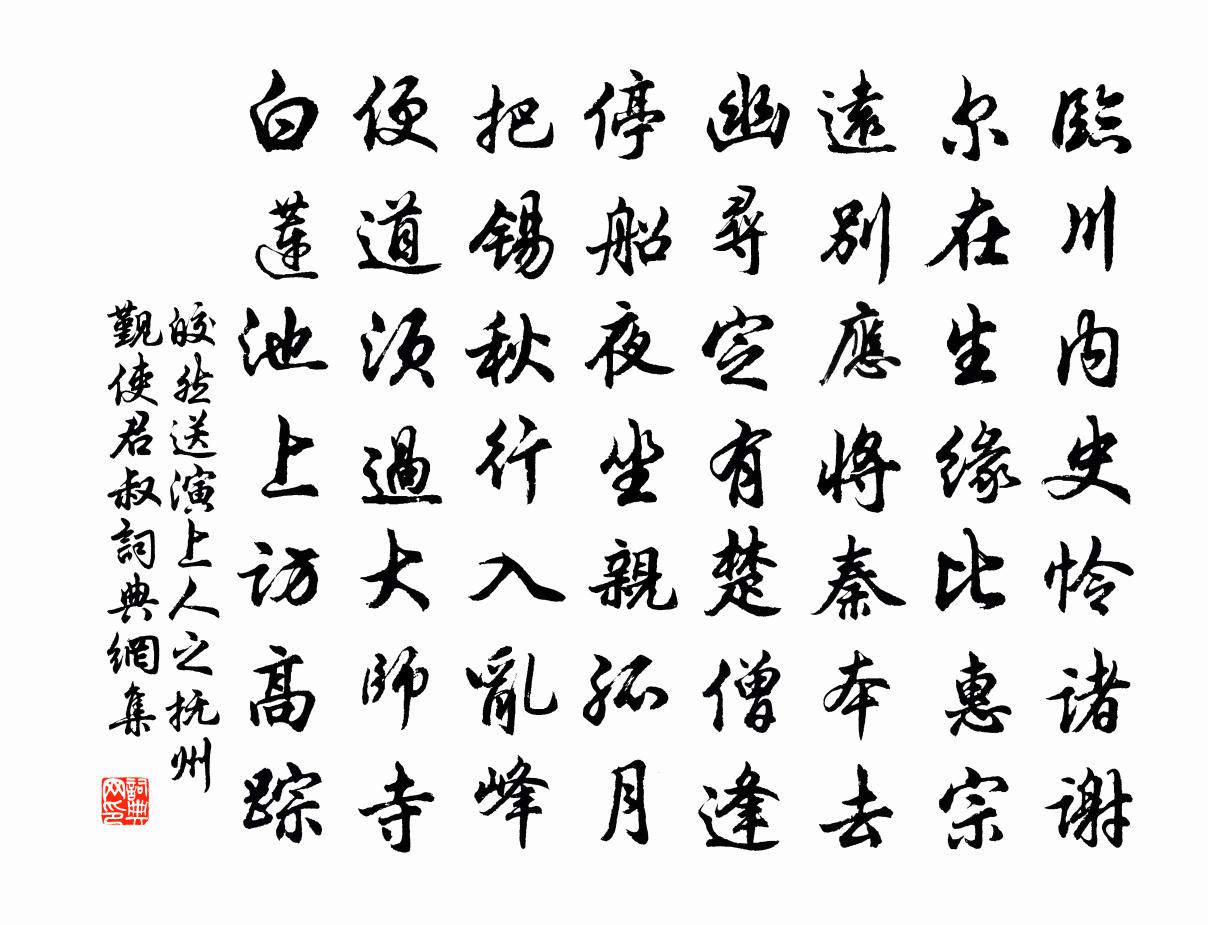 臨川內史怜諸謝
尔在生緣比惠宗
遠別應將秦本去
幽尋定有楚僧逢
停船夜坐親孤月
把錫秋行入亂峰
便道須過大師寺
白蓮池上訪高踪
皎然送演上人之抚州
覲使君叔詞典網集
詞典
网印